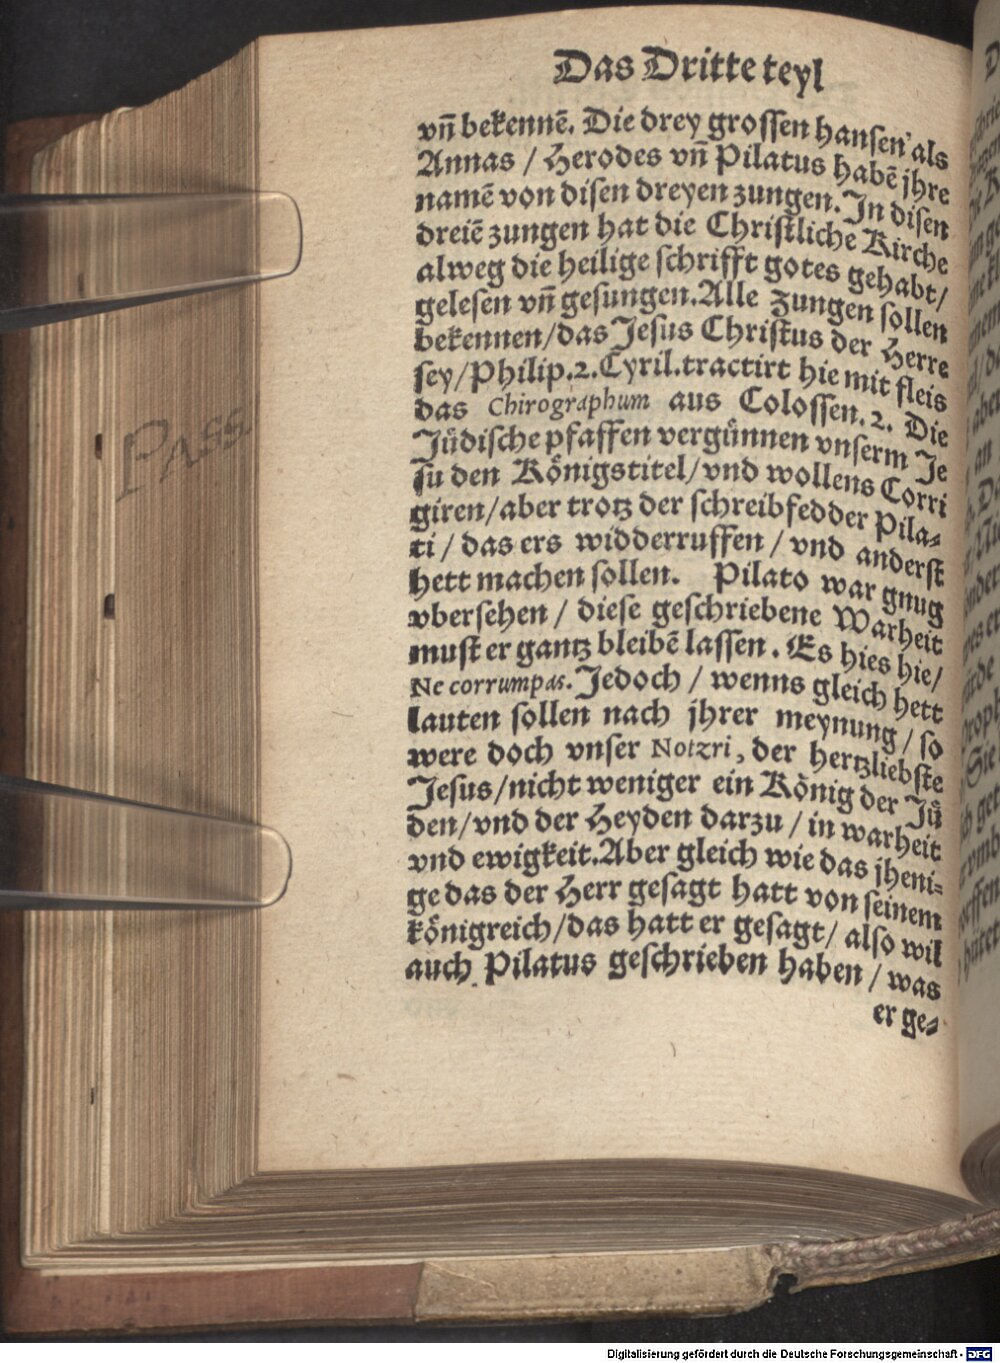 Das Dritte teyl
vñ bekennē. Die drey grossen hansen als
Annas / Herodes vñ Pilatus habē jhre
namē von disen dreyen zungen. In disen
dreiē zungen hat die Christlichē Kirche
alweg die heilige schrifft gotes gehabt/
gelesen vñ gesungen. Alle zungen sollen
bekennen/das Jesus Christus der Herre
sey/Philip.2. Cyril. tractirt hie mit fleis
das Chirographum aus Colossen. 2. Die
Jüdische pfaffen vergünnen vnserm Je
su den Königstitel/vnd wollens Corri
giren/aber trotz der schreibfedder Pila-
ti / das ers widderruffen / vnd anderst
hett machen sollen. Pilato war gnug
vbersehen / diese geschriebene Warheit
must er gantz bleibē lassen. Es hies hie/
Ne corrumpas. Jedoch / wenns gleich hett
lauten sollen nach jhrer meynung / so
were doch vnser Notzri, der hertzliebste
Jesus/nicht weniger ein König der Jü
den/vnd der Heyden darzu / in warheit
vnd ewigkeit. Aber gleich wie das jheni-
ge das der Herr gesagt hatt von seinem
königreich/das hatt er gesagt/ also wil
auch Pilatus geschrieben haben / was
er ge-
PASS
Digitalisierung gefördert durch die Deutsche Forschungsgemeinschaft - DFG